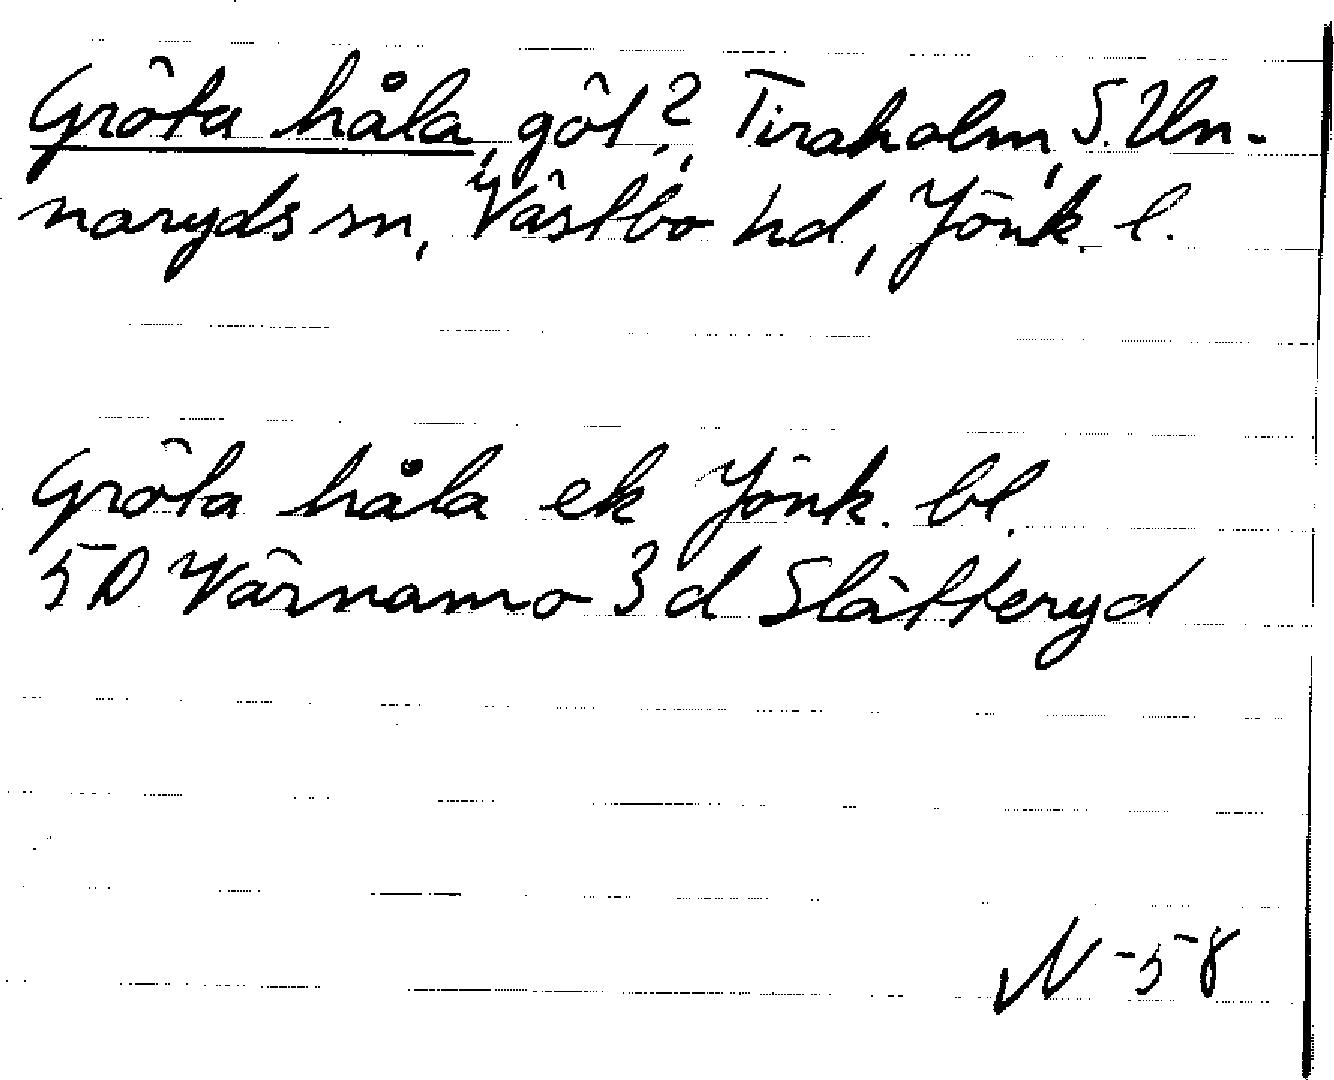 Gröta håla, göl?, Tiraholm, S. Un-
naryds sn, Västbo hd, Jönk. l.
Gröta håla ek Jönk. bl.
5D Värnamo 3d Slätteryd
N -58